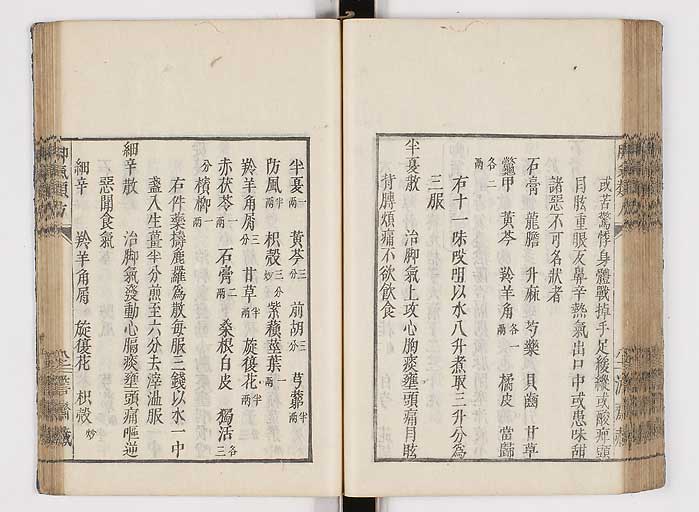 或苦驚悸身體戰掉手足緩縱或酸痺頭
目眩重眼反鼻辛熱氣出口中或患味甜
諸惡不可名狀者
石膏 龍膽 升麻 芍藥 貝齒 甘草
鼈甲 黃芩 羚羊角 各一兩 橘皮 當歸
各二兩
右十一味㕮咀以水八升煮取三升分為
三服
半夏散 治脚氣上攻心胸痰壅頭痛目眩
背膊煩痛不欲飲食
半夏 一兩 黃芩 三分 前胡 三分 芎藭 半兩
防風 半兩 枳殼 三分炒 紫蘇莖葉 一兩
羚羊角屑 三分 甘草 半兩 旋復花 半兩
赤茯苓 一兩 石膏 二兩 桑根白皮 獨活 各三
分 檳榔 一兩
右件藥擣麄羅為散每服三錢以水一中
盞入生薑半分煎至六分去滓溫服
細辛散 治脚氣發動心膈痰壅頭痛嘔逆
惡聞食氣
細辛 羚羊角屑 旋復花 枳殼 炒